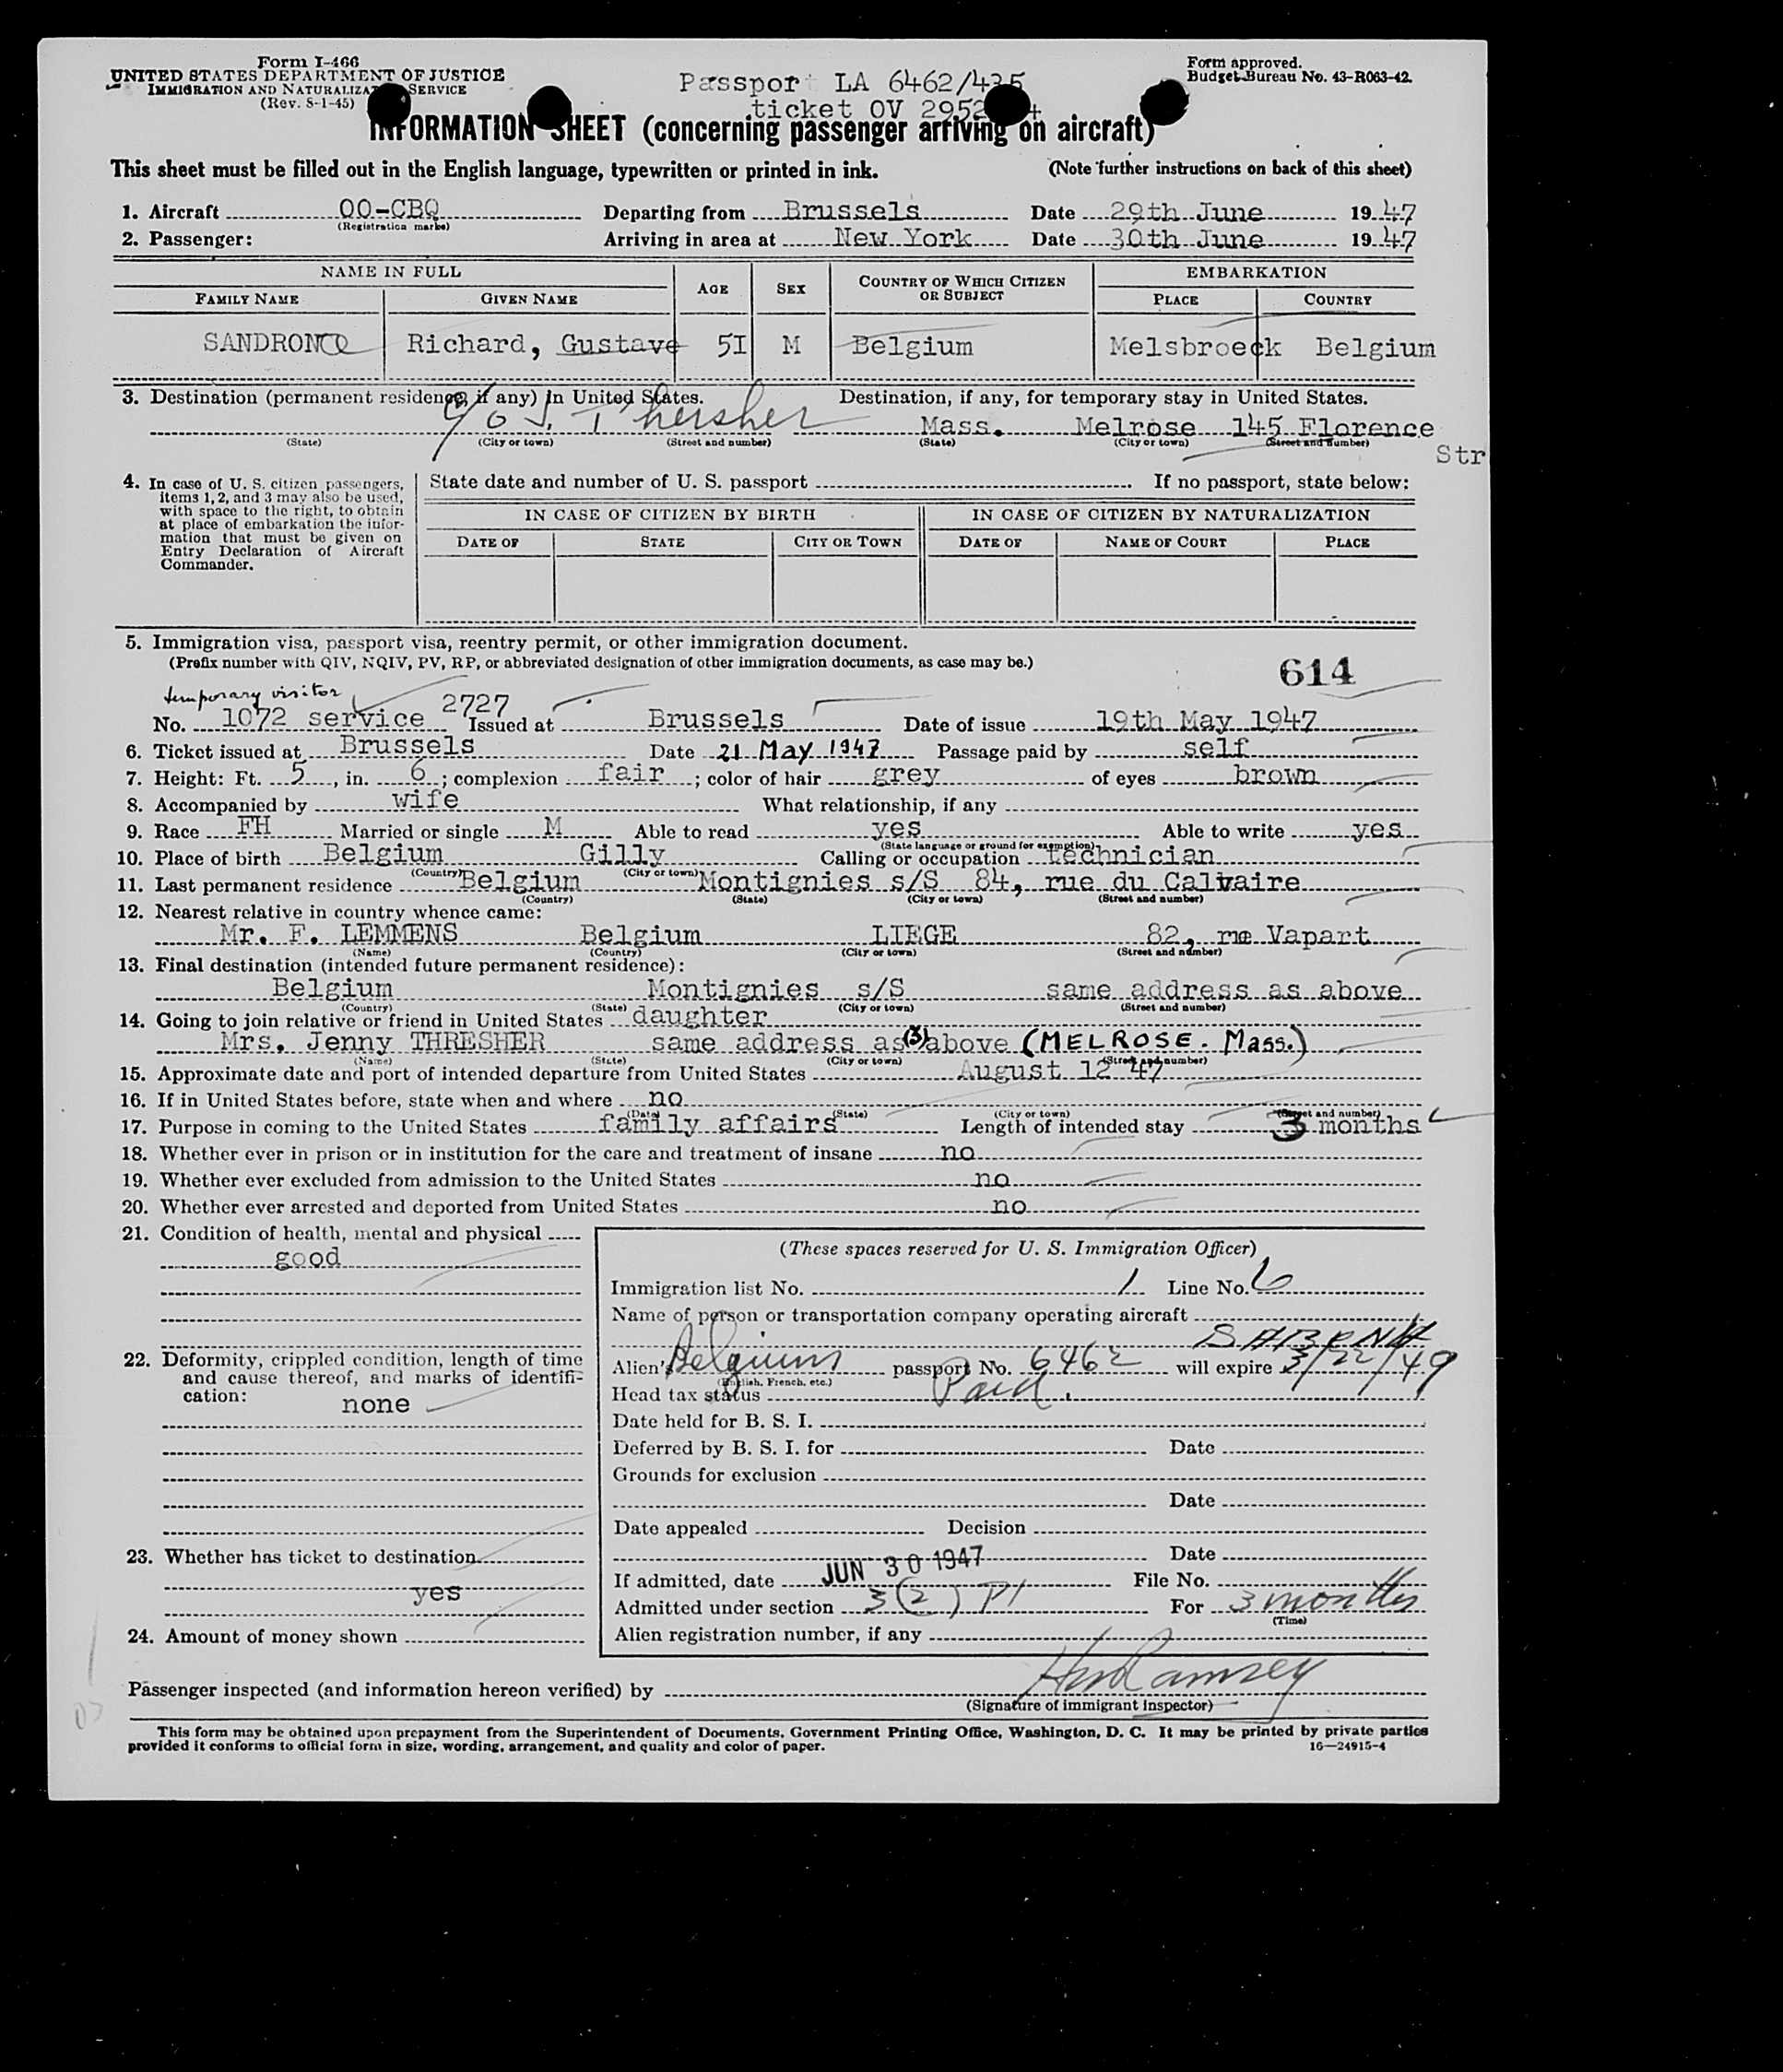 Form I-466
UNITED STATES DEPARTMENT OF JUSTICE
IMMIGRATION AND NATURALIZATION SERVICE
(Rev. 8-1-45)
Passport LA 6462/435
ticket OV 2952
Form approved.
Budget Bureau No. 43-R063-42.
INFORMATION SHEET (concerning passenger arriving on aircraft)
This sheet must be filled out in the English language, typewritten or printed in ink. (Note further instructions on back of this sheet)
1. Aircraft OO-CBQ Departing from Brussels Date 29th June 1947
(Registration marks)
2. Passenger: Arriving in area at New York Date 30th June 1947
NAME IN FULL AGE SEX COUNTRY OF WHICH CITIZEN OR SUBJECT EMBARKATION
FAMILY NAME GIVEN NAME PLACE COUNTRY
SANDRON Richard, Gustave 5I M Belgium Melsbroeck Belgium
3. Destination (permanent residence, if any) in United States. Destination, if any, for temporary stay in United States.
c/o J. Thersher Mass. Melrose 145 Florence
(State) (City or town) (Street and number) (State) (City or town) (Street and number)
Str
4. In case of U. S. citizen passengers, items 1, 2, and 3 may also be used, with space to the right, to obtain at place of embarkation the information that must be given on Entry Declaration of Aircraft Commander.
State date and number of U. S. passport If no passport, state below:
IN CASE OF CITIZEN BY BIRTH IN CASE OF CITIZEN BY NATURALIZATION
DATE OF STATE CITY OR TOWN DATE OF NAME OF COURT PLACE
5. Immigration visa, passport visa, reentry permit, or other immigration document.
(Prefix number with QIV, NQIV, PV, RP, or abbreviated designation of other immigration documents, as case may be.)
614
temporary visitor
2727
No. 1072 service Issued at Brussels Date of issue 19th May 1947
6. Ticket issued at Brussels Date 21 May 1947 Passage paid by self
7. Height: Ft. 5, in. 6; complexion fair; color of hair grey of eyes brown
8. Accompanied by wife What relationship, if any
9. Race FH Married or single M Able to read yes Able to write yes
(State language or ground for exemption)
10. Place of birth Belgium Gilly Calling or occupation technician
(Country) (City or town)
11. Last permanent residence Belgium Montignies s/S 84, rue du Calvaire
(Country) (State) (City or town) (Street and number)
12. Nearest relative in country whence came:
Mr. F. LEMMENS Belgium LIEGE 82, rue Vapart
(Name) (Country) (City or town) (Street and number)
13. Final destination (intended future permanent residence):
Belgium Montignies s/S same address as above
(Country) (State) (City or town) (Street and number)
14. Going to join relative or friend in United States daughter
Mrs. Jenny THRESHER same address as (3) above (MELROSE. Mass.)
(Name) (State) (City or town) (Street and number)
15. Approximate date and port of intended departure from United States August 12 47
16. If in United States before, state when and where no
(Date) (State) (City or town) (Street and number)
17. Purpose in coming to the United States family affairs Length of intended stay 3 months
18. Whether ever in prison or in institution for the care and treatment of insane no
19. Whether ever excluded from admission to the United States no
20. Whether ever arrested and deported from United States no
21. Condition of health, mental and physical
good
22. Deformity, crippled condition, length of time and cause thereof, and marks of identification:
none
23. Whether has ticket to destination
yes
24. Amount of money shown
(These spaces reserved for U. S. Immigration Officer)
Immigration list No. 1 Line No. 6
Name of person or transportation company operating aircraft
SABENA
Alien's Belgium passport No. 6462 will expire 3/22/49
(English, French, etc.)
Head tax status Paid.
Date held for B. S. I.
Deferred by B. S. I. for Date
Grounds for exclusion
Date
Date appealed Decision
Date
If admitted, date JUN 30 1947 File No.
Admitted under section 3(2) P1 For 3 months
(Time)
Alien registration number, if any
Passenger inspected (and information hereon verified) by Ramsey
(Signature of immigrant inspector)
This form may be obtained upon prepayment from the Superintendent of Documents, Government Printing Office, Washington, D. C. It may be printed by private parties
provided it conforms to official form in size, wording, arrangement, and quality and color of paper. 16—24915-4